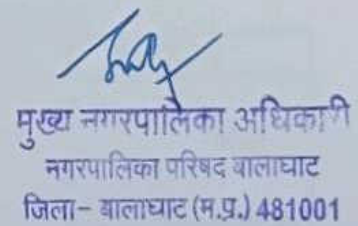 मुख्य नगरपालिका अधिकारी
नगरपालिका परिषद बालाघाट
जिला- बालाघाट (म.प्र.) 481001